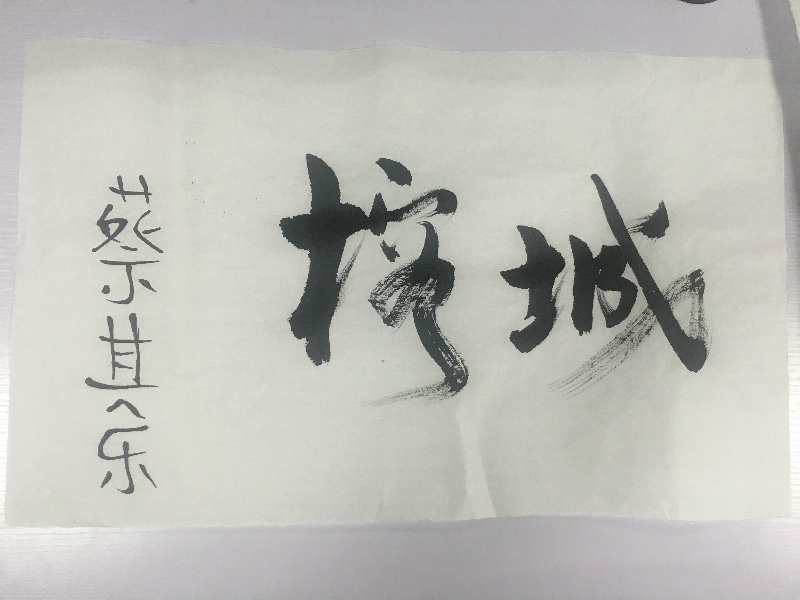 榕城
蔡其乐